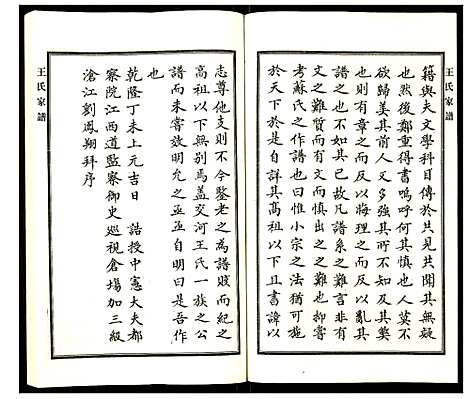 王氏家譜
籍與夫文學科目傳於共見共聞其無疑
也然後鄭重得書嗚呼何其慎也人莫不
欲歸美其前人又多強其所不知及其久
也則有章之而反以晦理之而反以亂其
譜之也不如其已故凡譜系之難言非有
文之難質而有文而慎出之之難也抑嘗
考蘇氏之作譜也曰惟小宗之法猶可施
於天下於是自詳其高祖以下且書諱以
志尊他支則不令鑒老之為譜賤而紀之
高祖以下無別焉蓋交河王氏一族之公
譜而未嘗效明允之亟亟自明曰是吾作
也
乾隆丁未上元吉日 誥授中憲大夫都
察院江西道監察御史巡視倉場加三級
滄江劉鳳翔拜序
王氏家譜